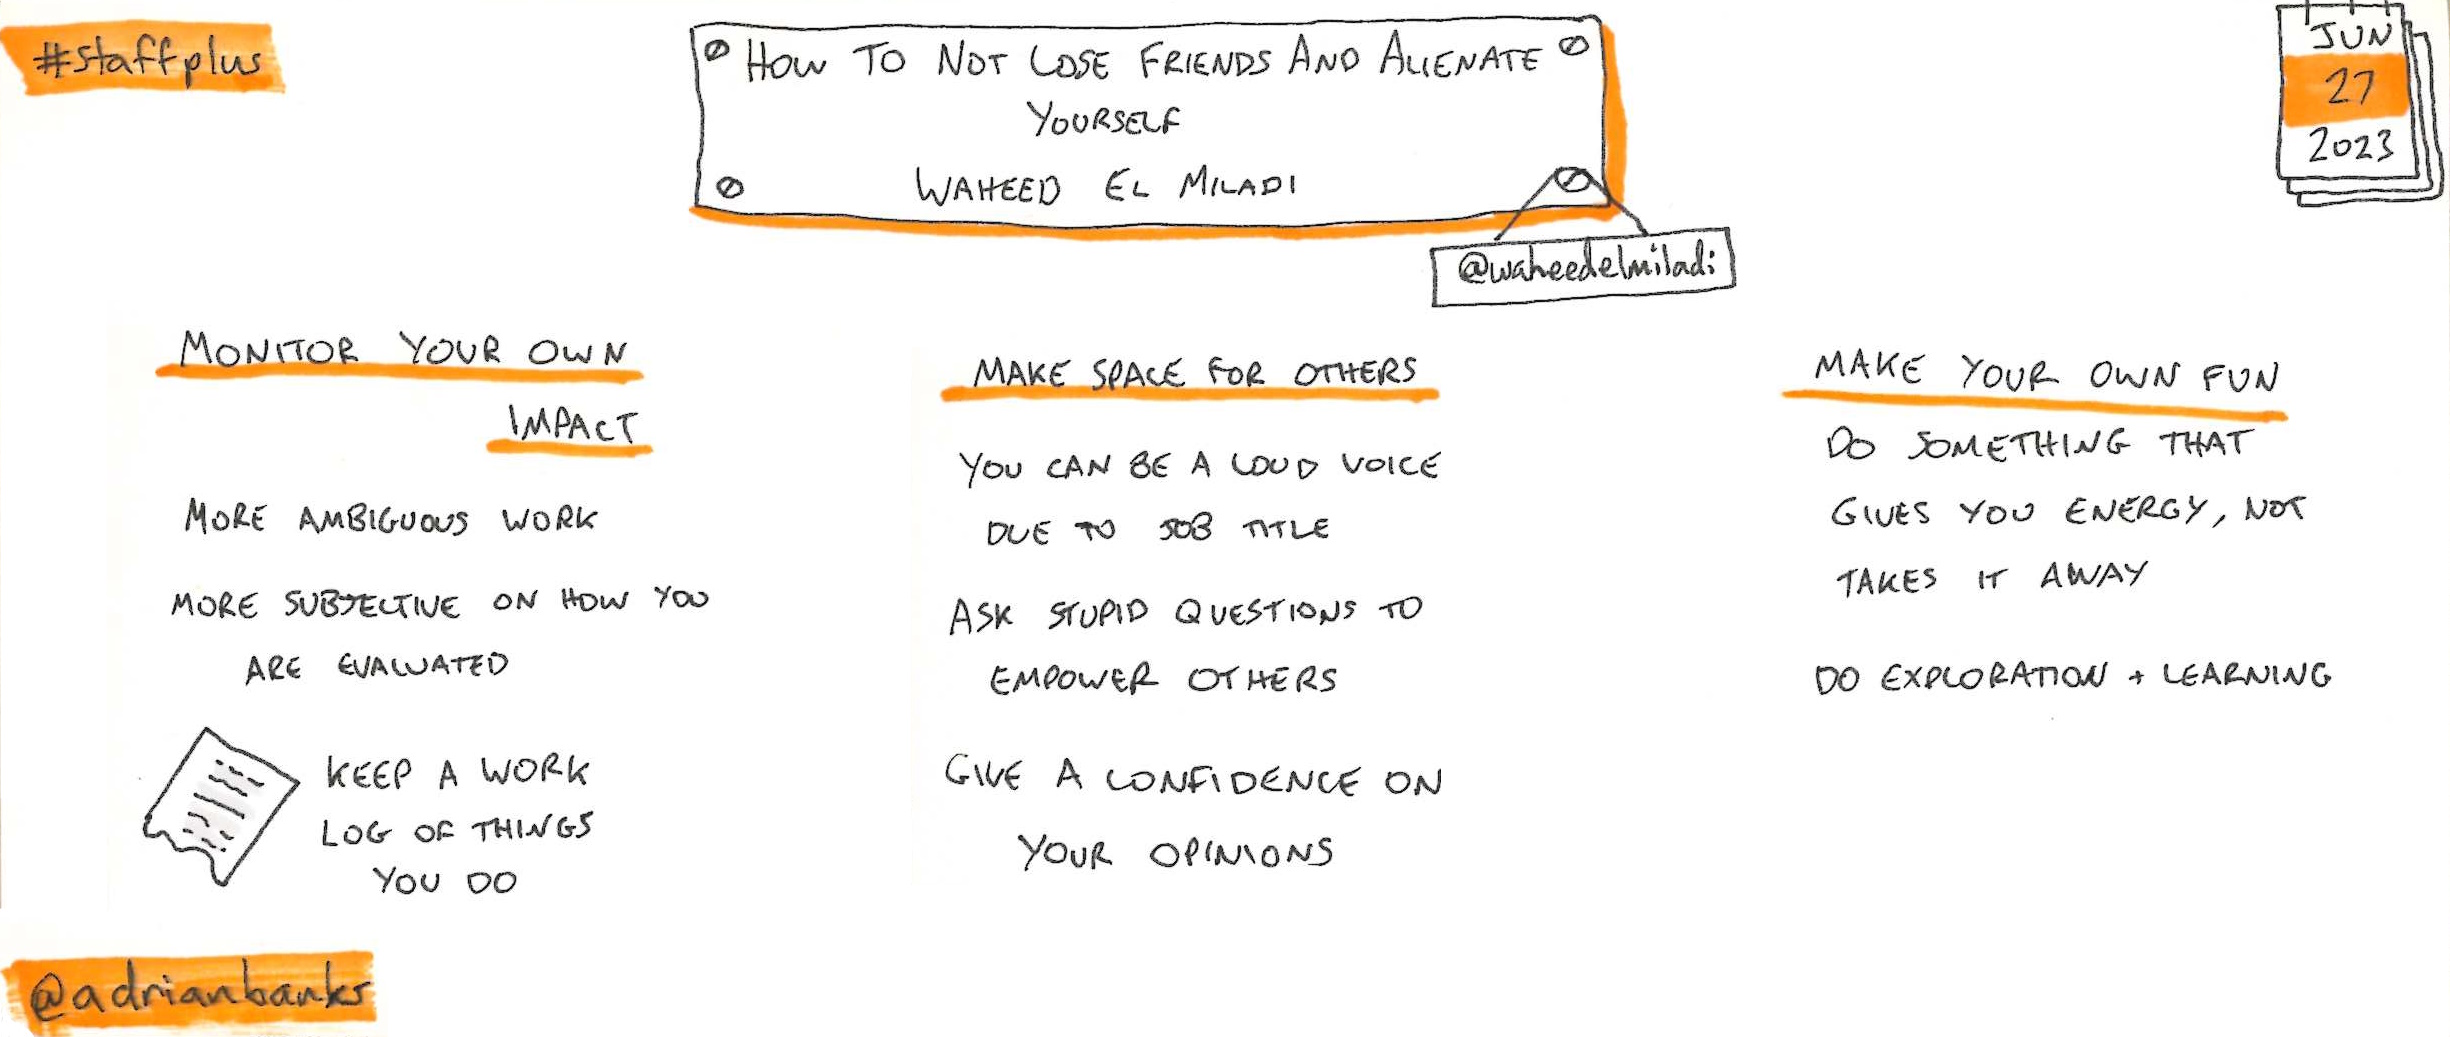 #staffplus
How To Not Lose Friends And Alienate
Yourself
Waheed El Miladi
@waheedelmiladi
JUN
27
2023
MONITOR YOUR OWN
IMPACT
MORE AMBIGUOUS WORK
MORE SUBJECTIVE ON HOW YOU
ARE EVALUATED
KEEP A WORK
LOG OF THINGS
YOU DO
MAKE SPACE FOR OTHERS
YOU CAN BE A LOUD VOICE
DUE TO JOB TITLE
ASK STUPID QUESTIONS TO
EMPOWER OTHERS
GIVE A CONFIDENCE ON
YOUR OPINIONS
MAKE YOUR OWN FUN
DO SOMETHING THAT
GIVES YOU ENERGY, NOT
TAKES IT AWAY
DO EXPLORATION + LEARNING
@adrianbanks